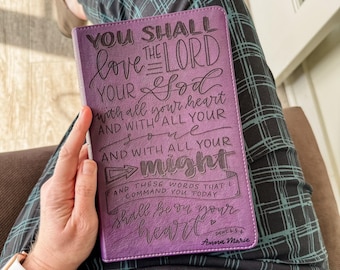 YOU SHALL
love THE LORD
YOUR God
with all your heart
AND WITH ALL YOUR
soul
AND WITH ALL YOUR
might
AND THESE WORDS THAT I
COMMAND YOU TODAY
shall be on your
heart
Anna Marie